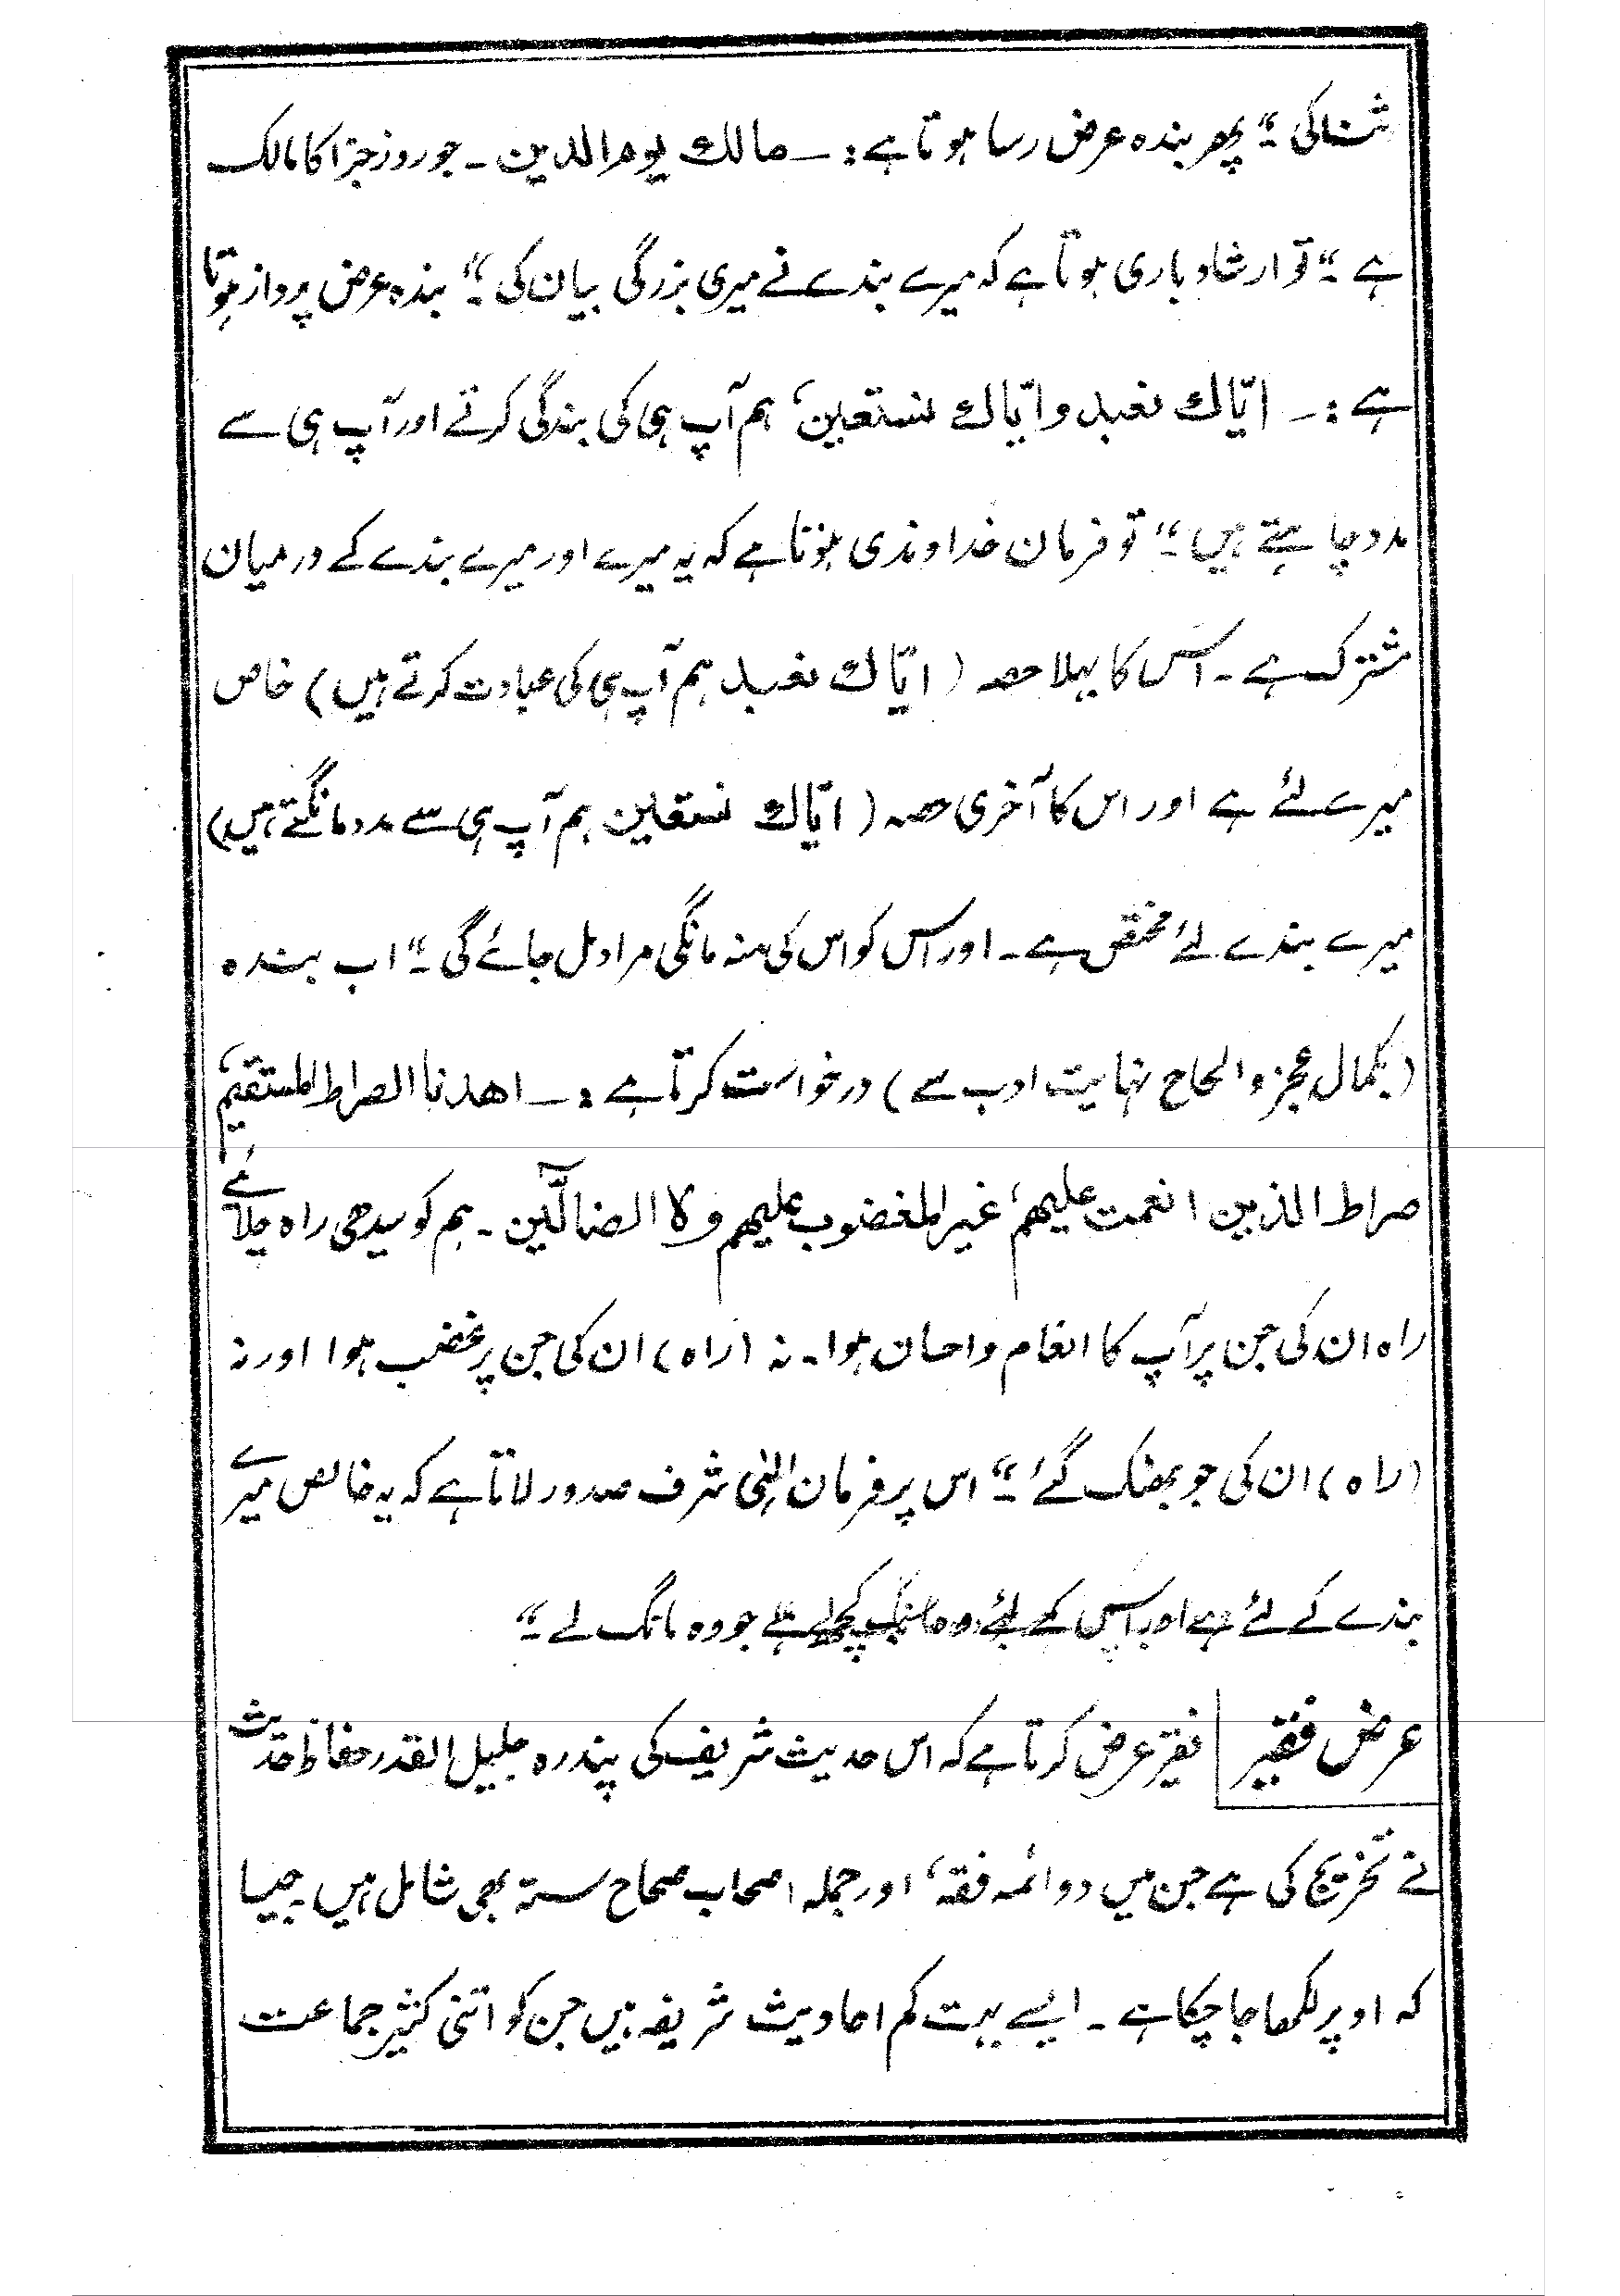 ثنا کی ۔“ پھر بندہ عرض رسا ہوتا ہے :۔ مالك يوم الدين ۔ جو روزِ جزا کا مالک
ہے ۔“ تو ارشاد باری ہوتا ہے کہ میرے بندے نے میری بزرگی بیان کی ۔“ بندہ عرض پرداز ہوتا
ہے :۔ ایّاك نعبد وایّاك نستعین، ہم آپ ہی کی بندگی کرتے اور آپ ہی سے
مدد چاہتے ہیں ۔“ تو فرمان خداوندی ہوتا ہے کہ یہ میرے اور میرے بندے کے درمیان
مشترک ہے ۔ اس کا پہلا حصہ ( ایّاك نعبد ہم آپ ہی کی عبادت کرتے ہیں ) خاص
میرے لئے ہے اور اس کا آخری حصہ ( ایّاك نستعین ہم آپ ہی سے مدد مانگتے ہیں )
میرے بندے لئے مختص ہے ۔ اور اس کو اس کی منہ مانگی مراد مل جائے گی ۔“ اب بندہ
( بکمال عجز والحاح نہایت ادب سے ) درخواست کرتا ہے :۔ اهدنا الصراط المستقیم،
صراط الذین انعمت علیهم، غیر المغضوب علیهم ولا الضآلّین ۔ ہم کو سیدھی راہ چلائے
راہ ان کی جن پر آپ کا انعام واحسان ہوا ۔ نہ ( راہ ) ان کی جن پر غضب ہوا اور نہ
( راہ ) ان کی جو بھٹک گئے ۔“ اس پر فرمان الٰہی شرف صدور لاتا ہے کہ یہ خالص میرے
بندے کے لئے ہے اور اس کے لئے وہ جو وہ مانگ لے ۔“
عرض فقیر فقیر عرض کرتا ہے کہ اس حدیث شریف کی پندرہ جلیل القدر حفاظ حدیث
نے تخریج کی ہے جن میں دو ائمہ فقہ، اور جملہ اصحاب صحاح ستہ بھی شامل ہیں ۔ جیسا
کہ اوپر لکھا جا چکا ہے ۔ ایسے بہت کم احادیث شریفہ ہیں جن کو اتنی کثیر جماعت